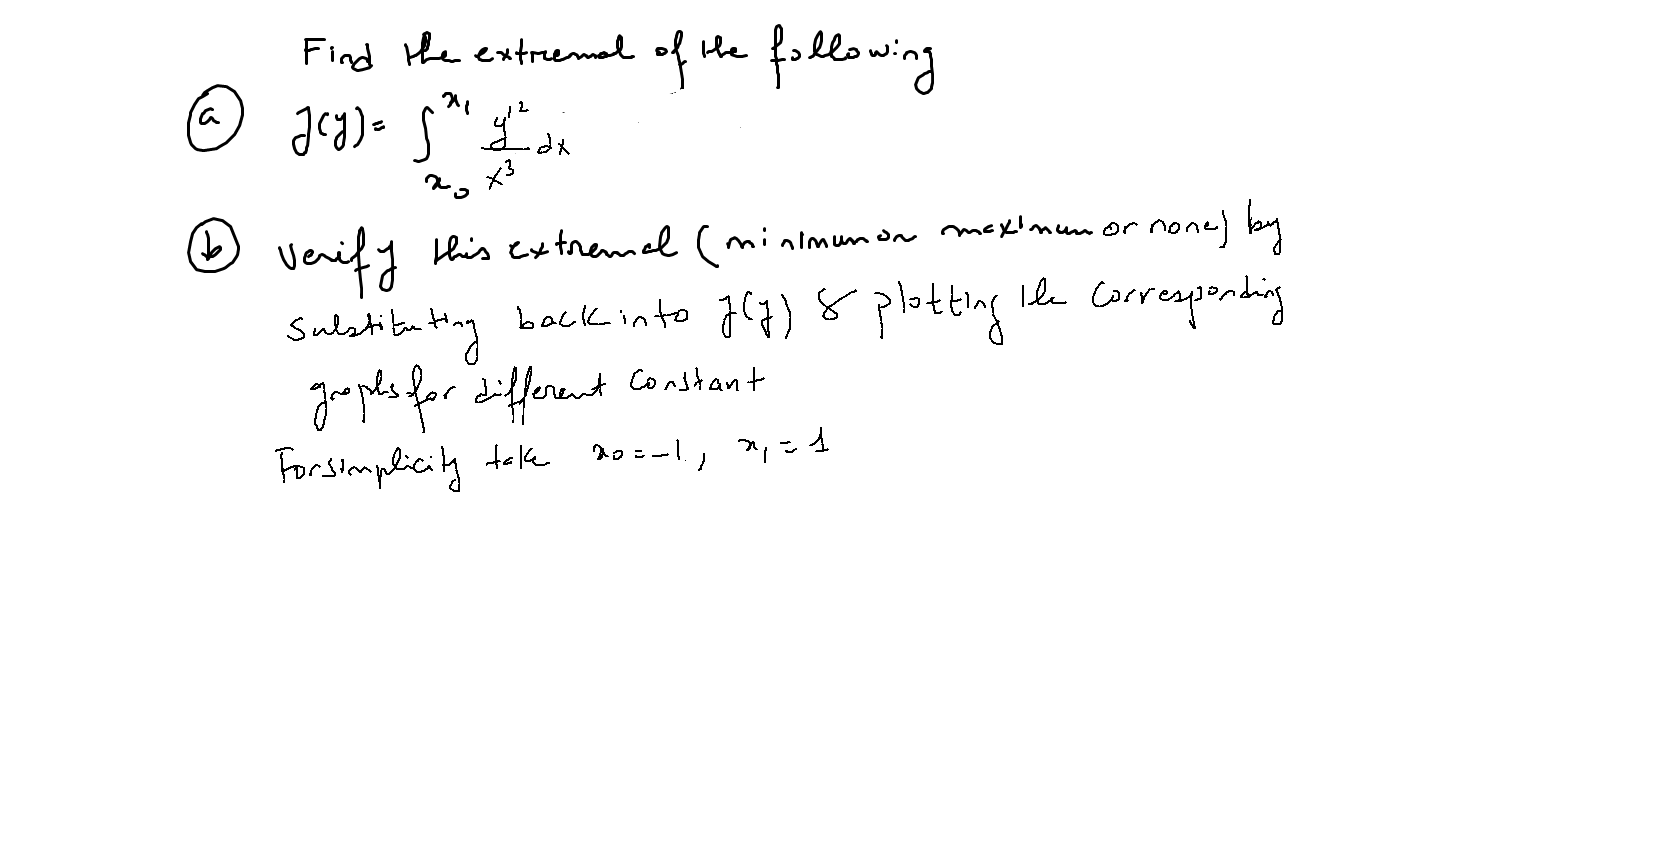 Find the extremal of the following
(a) J(y) = ∫_{x_0}^{x_1} y'^2 / x^3 dx
(b) Verify this extremal (minimum or maximum or none) by
Substituting back into J(y) & plotting the corresponding
graphs for different constant
For simplicity take x_0 = -1, x_1 = 1